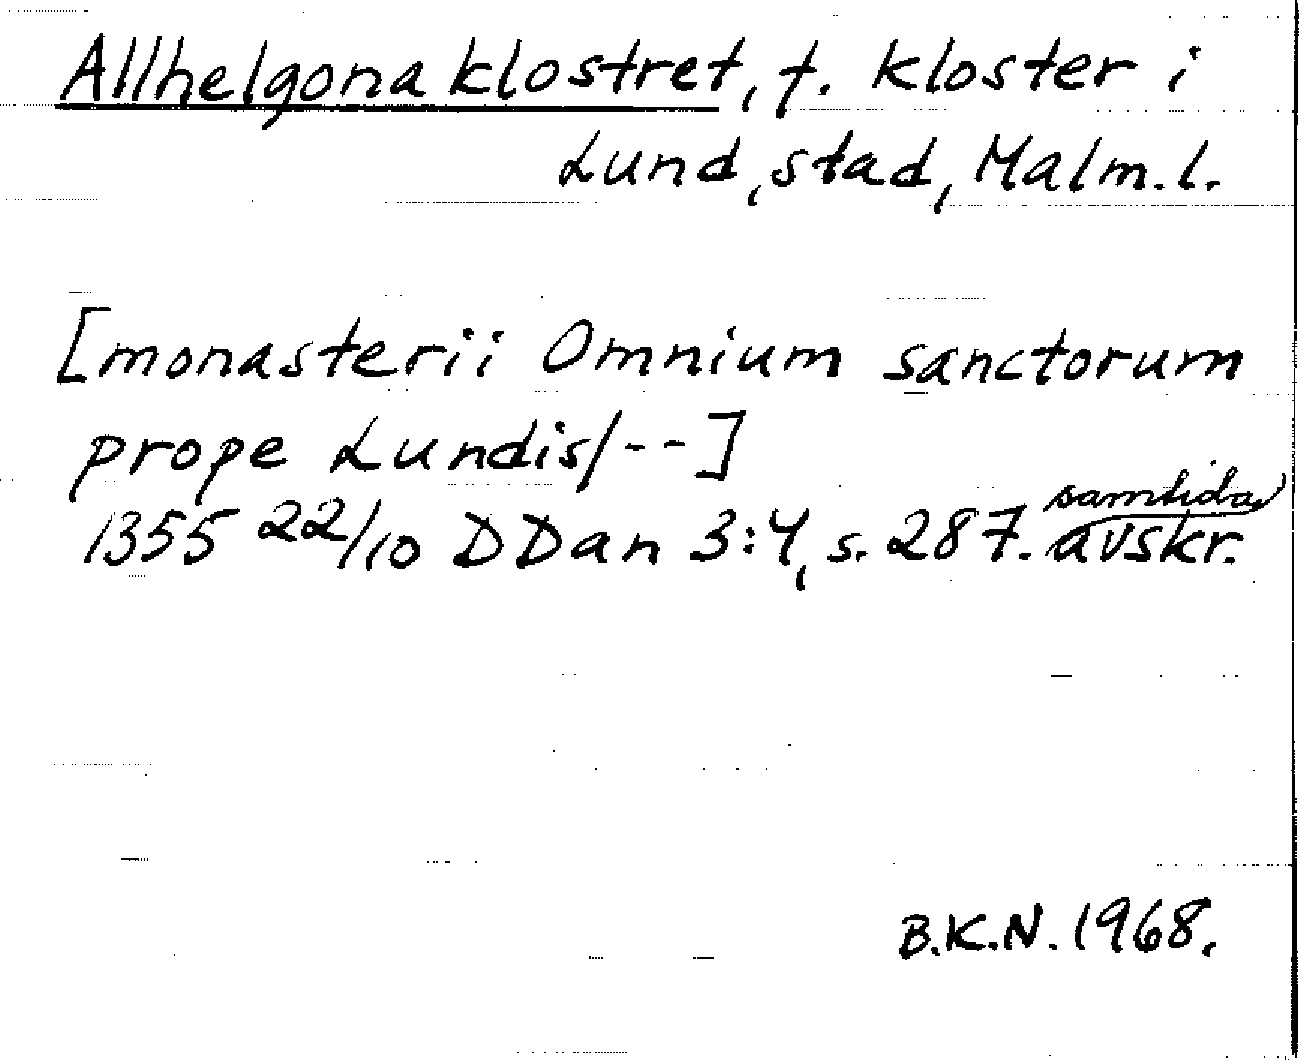 Allhelgonaklostret, f. kloster i
Lund, stad, Malm. l.
[monasterii Omnium sanctorum
prope Lundis/--]
1355 22/10 DDan 3:4, s. 287. samtida avskr.
B.K.N. 1968.